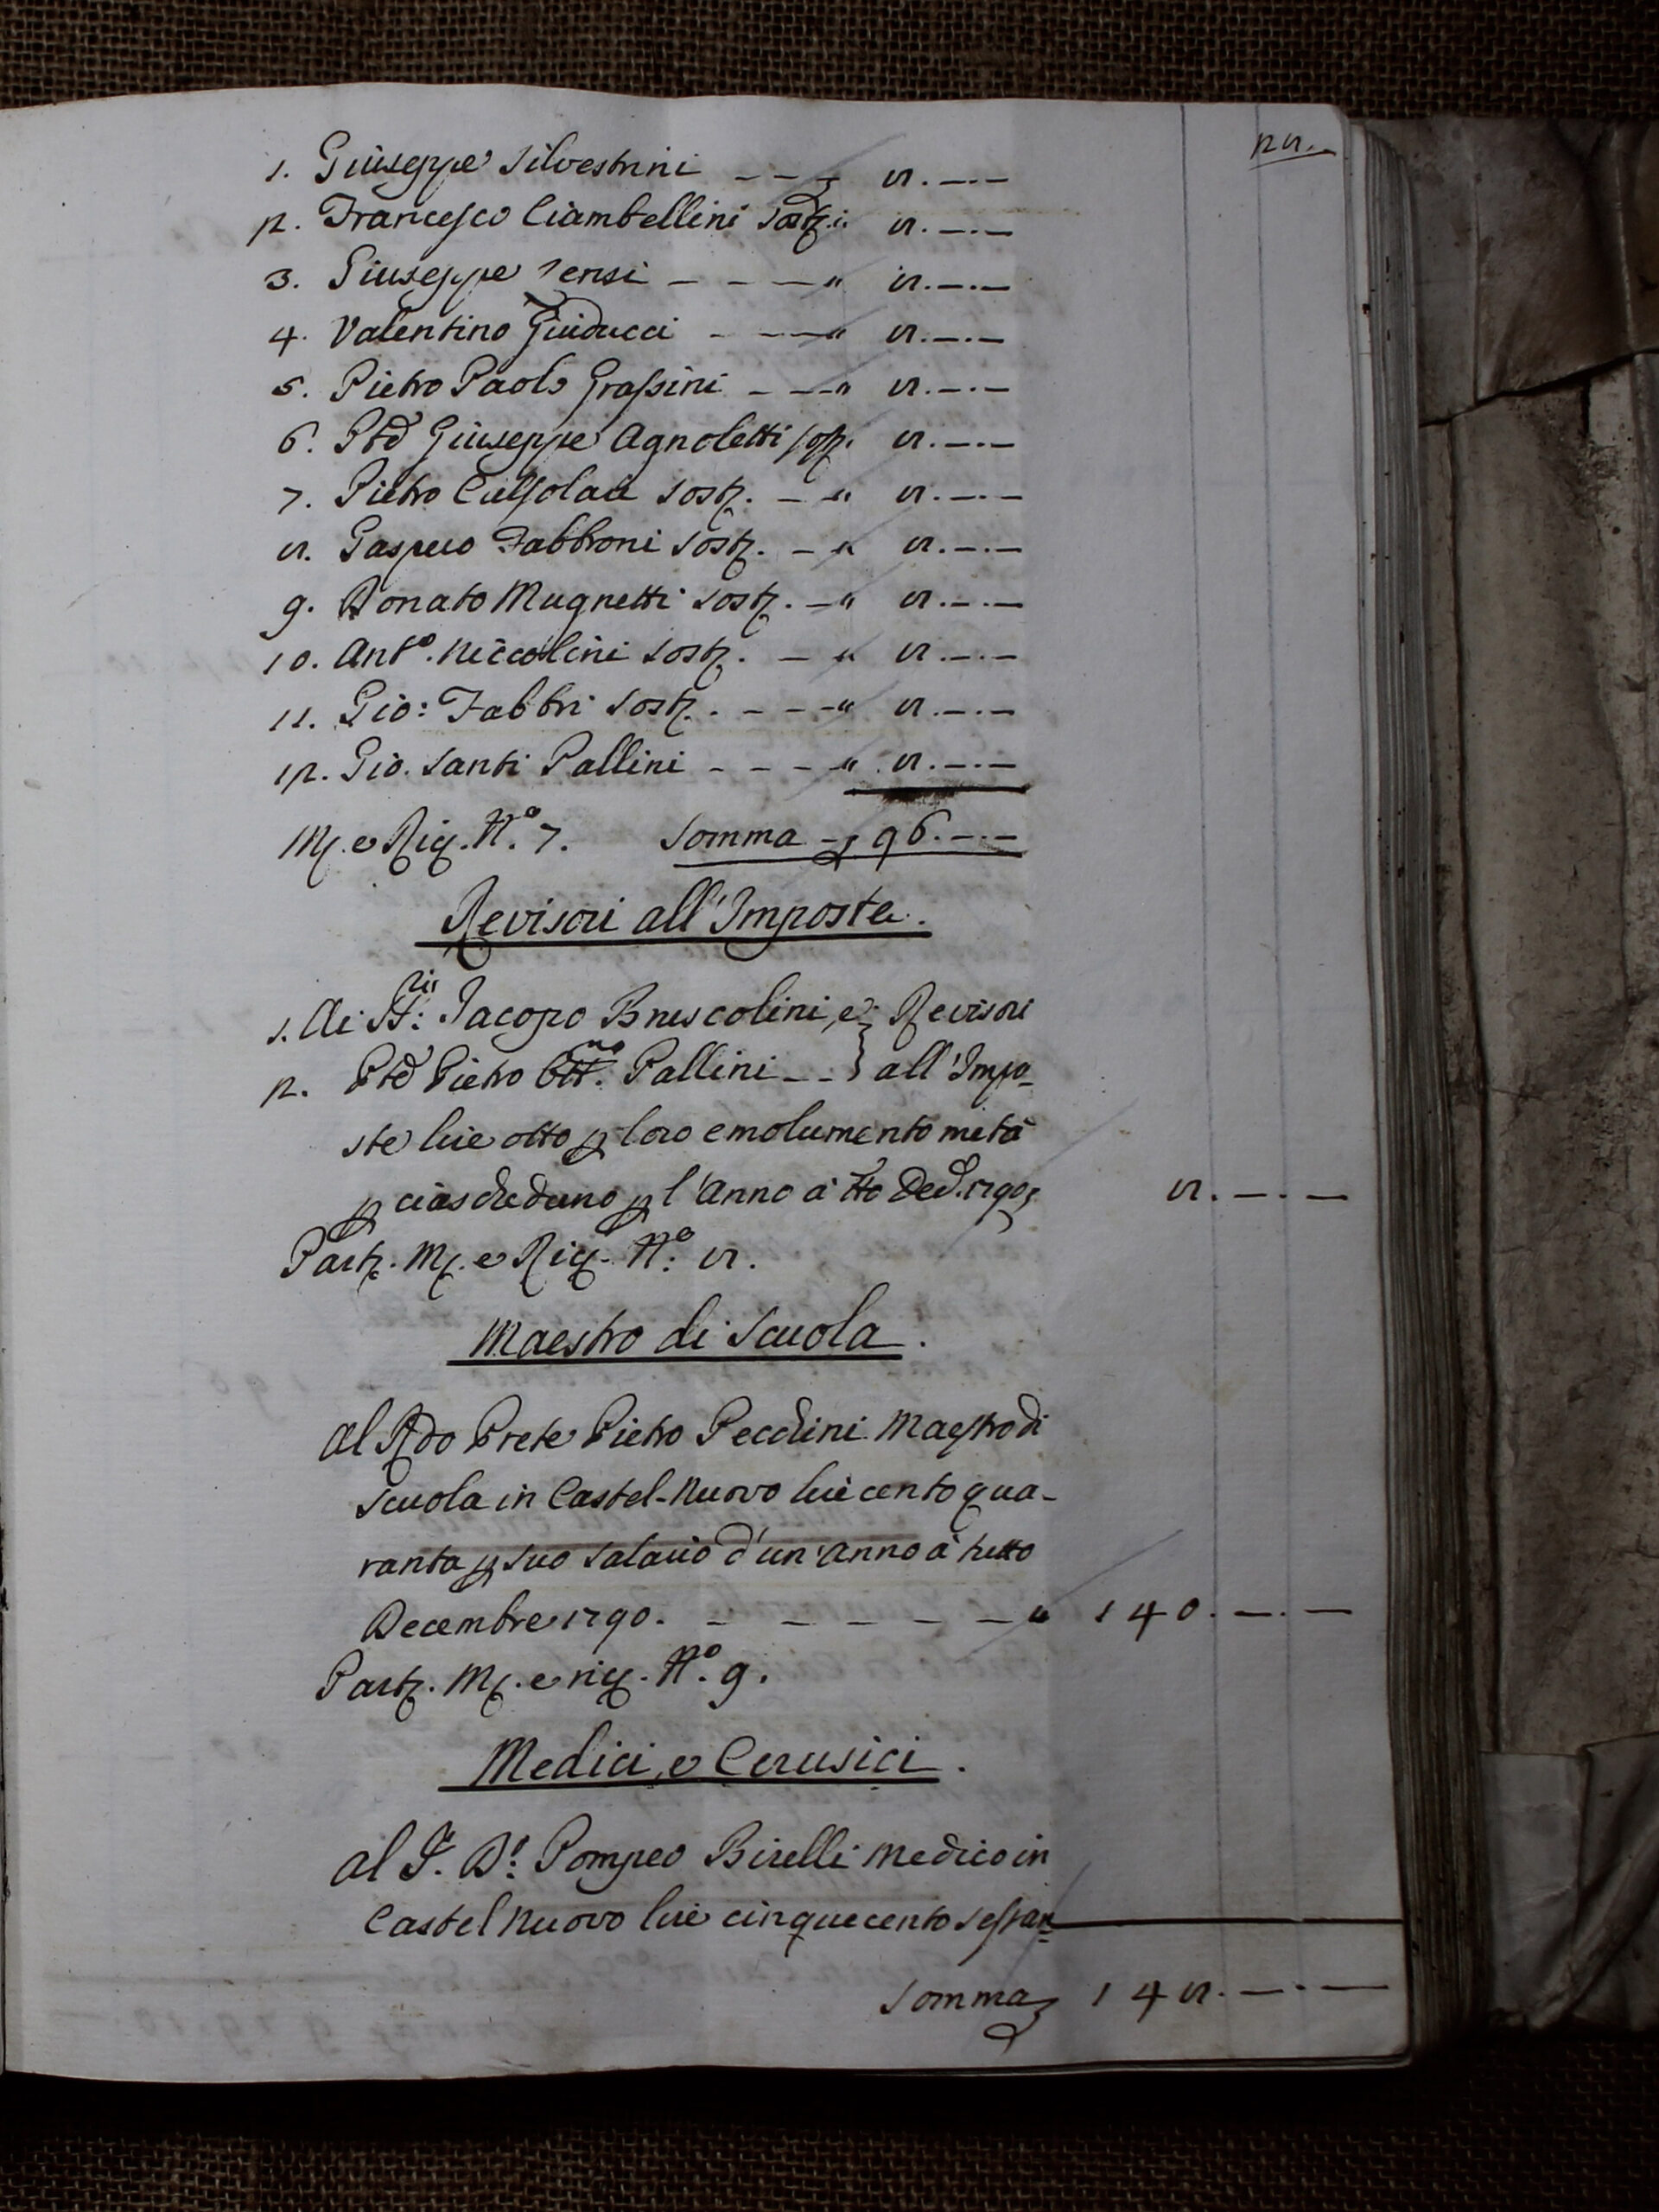 28.
1. Giuseppe Silvestrini - - - £ 8. —.—
2. Francesco Ciambellini Sostt.i: 8. —.—
3. Giuseppe Sensi - - — " 8. —.—
4. Valentino Guiducci - — " 8. —.—
5. Pietro Paolo Grassini - — " 8. —.—
6. Pte Giuseppe Agnoletti sost. 8. —.—
7. Pietro sost. - " 8. —.—
8. Gaspero Fabbroni Sost. - " 8. —.—
9. Donato Mugnetti Sost. - " 8. —.—
10. Anto. Niccolini Sost. - " 8. —.—
11. Gio: Fabbri Sost. - - - " 8. —.—
12. Gio. Santi Pallini - - - " 8. —.—
M. e Riq. No. 7. Somma - £ 96. —.—
Revisori all'Imposte.
1. Ai SS:ri Jacopo Bruscolini, e } Revisori
2. Pte Pietro Pallini - - } all'Impo-
ste lire otto p loro emolumento metà
p ciascheduno p l'Anno à tto Dec. 1790 £ 8. —.—
Part. M. e Riq. No: 8.
Maestro di Scuola.
Al Rdo Prete Pietro Pecchini Maestro di
Scuola in Castel-Nuovo lire cento qua-
ranta p suo salario d'un'anno à tutto
Decembre 1790. - - - - - " 140. —.—
Part. M. e riq. No. 9.
Medici, e Cerusici.
Al S. Dr: Pompeo Birelli Medico in
Castel Nuovo lire cinquecento sessan=
Somma £ 148. —.—